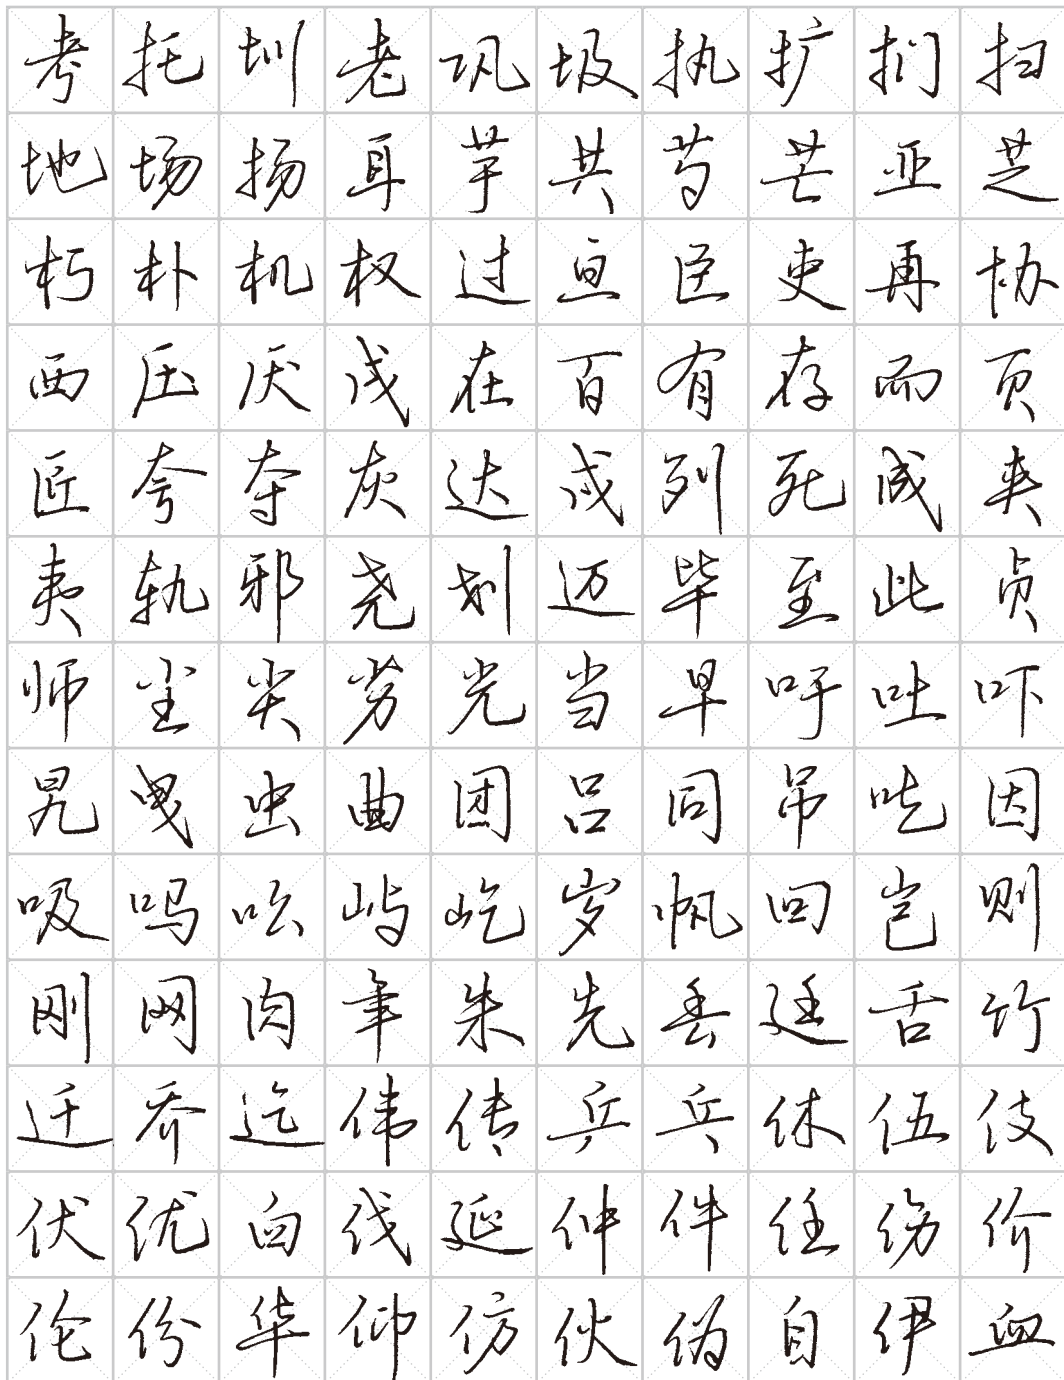 考托圳老巩圾执扩扪扫
地场扬耳芋共芍芒亚芝
朽朴机权过亘臣吏再协
西压厌戊在百有存而页
匠夸夺灰达戍列死成夹
夷轨邪尧划迈毕至此贞
师尘尖劳光当早吁吐吓
晃曳虫曲团吕同吊吃因
吸吗吆屿屹岁帆回岂则
刚网肉年朱先丢廷舌竹
迁乔迄伟传乒乓休伍伎
伏优臼伐延仲件任伤价
伦份华仰仿伙伪自伊血